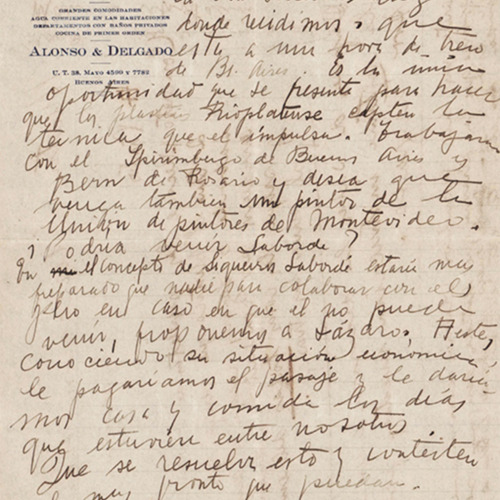 GRANDES COMODIDADES
AGUA CORRIENTE EN LAS HABITACIONES
DEPARTAMENTOS CON BAÑOS PRIVADOS
COCINA DE PRIMER ORDEN
ALONSO & DELGADO
U. T. 38, MAYO 4550 y 7782
BUENOS AIRES
donde residimos y que
esta a una hora de tren
de Bs. Aires. Es la única
oportunidad que se presenta para hacer
que los plasticos Rioplatense capten la
tecnica que el impulsa. Trabajaran
con el Spirimbergo de Buenos Aires y
Berni de Rosario y desea que
venga tambien un pintor de la
Unión de pintores de Montevideo.
¿Podria venir Laborde?
En el concepto de Siqueiros Laborde estaria mas
preparado que nadie para colaborar con el
pero en caso en que el no pueda
venir, proponemos a Lázaro. Este,
conociendo su situacion económica
le pagariamos el pasaje y le daria
mos casa y comida los dias
que estuviera entre nosotros.
Que se resuelva esto y contesten
lo muy pronto que puedan.